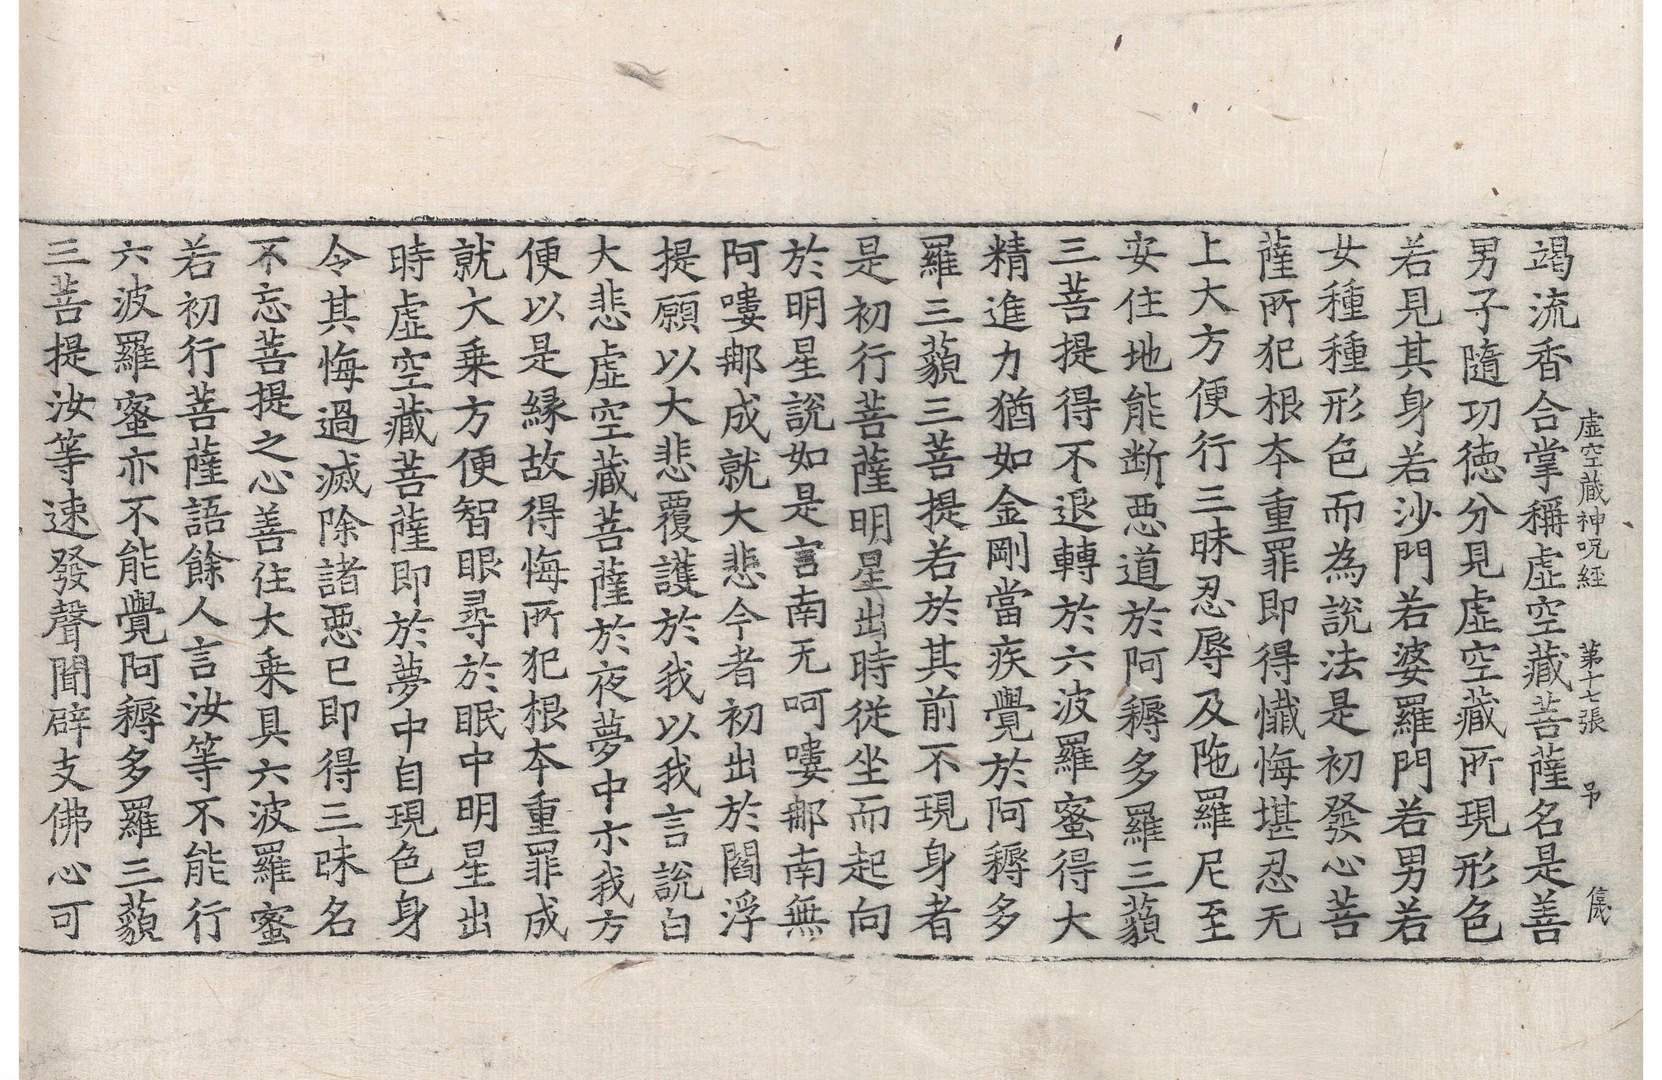 虛空藏神呪經 第十七張 弔
竭流香合掌稱虛空藏菩薩名是善
男子隨功徳分見虛空藏所現形色
若見其身若沙門若婆羅門若男若
女種種形色而為說法是初發心菩
薩所犯根本重罪即得懺悔堪忍无
上大方便行三昧忍辱及陁羅尼至
安住地能断惡道於阿耨多羅三藐
三菩提得不退轉於六波羅蜜得大
精進力猶如金剛當疾覺於阿耨多
羅三藐三菩提若於其前不現身者
是初行菩薩明星出時從坐而起向
於明星說如是言南无呵嘍𨚗南無
阿嘍𨚗成就大悲今者初出於閻浮
提願以大悲覆護於我以我言說白
大悲虛空藏菩薩於夜夢中示我方
便以是縁故得悔所犯根本重罪成
就大乗方便智眼尋於眠中明星出
時虛空藏菩薩即於夢中自現色身
令其悔過滅除諸惡已即得三昧名
不忘菩提之心善住大乗具六波羅蜜
若初行菩薩語餘人言汝等不能行
六波羅蜜亦不能覺阿耨多羅三藐
三菩提汝等速發聲聞辟支佛心可